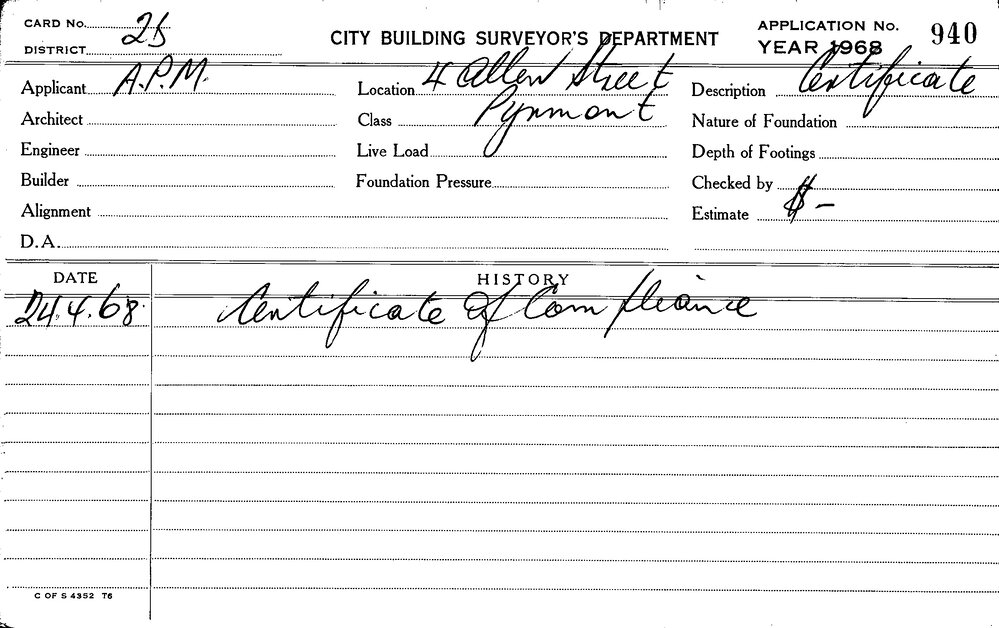 CARD No. 2b
DISTRICT
CITY BUILDING SURVEYOR'S DEPARTMENT
APPLICATION No. 940
YEAR 1968
Applicant A.P.M.
Location 4 Allen Street
Description Certificate
Architect
Class Pyrmont
Nature of Foundation
Engineer
Live Load
Depth of Footings
Builder
Foundation Pressure
Checked by
Alignment
Estimate $ -
D.A.
DATE HISTORY
24.4.68. Certificate of Compliance
C OF S 4352 T6